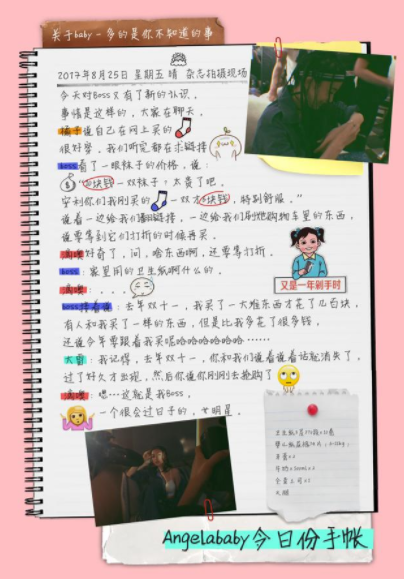 关于baby－多的是你不知道的事
2017年8月25日 星期五 晴 杂志拍摄现场
今天对Boss又有了新的认识。
事情是这样的，大家在聊天，
橘子说自己在网上买的
很好穿，我们听完都在求链接
boss看了一眼袜子的价格，说：
块钱一双袜子！太贵了吧，
穿到你们我刚买的 一双才 块钱，特别舒服。”
说着一边给我们翻链接，一边给我们刷她购物车里的东西，
说要等到它们打折的时候再买。
好奇了，问，啥东西啊，还要等打折。
boss：家里用的卫生纸啊什么的。
：....
boss接着说：去年双十一，我买了一大堆东西才花了几百块，
有人和我买了一样的东西，但是比我多花了很多钱，
还说今年要跟着我买呢哈哈哈哈哈哈哈......
：我记得，去年双十一，你和我们说着说着话就消失了，
过了好久才出现，然后你说你刚刚去抢购了
：嗯...这就是我Boss，
一个很会过日子的，女明星。
又是一年剁手时
牙膏x2
Angelababy今日份手帐